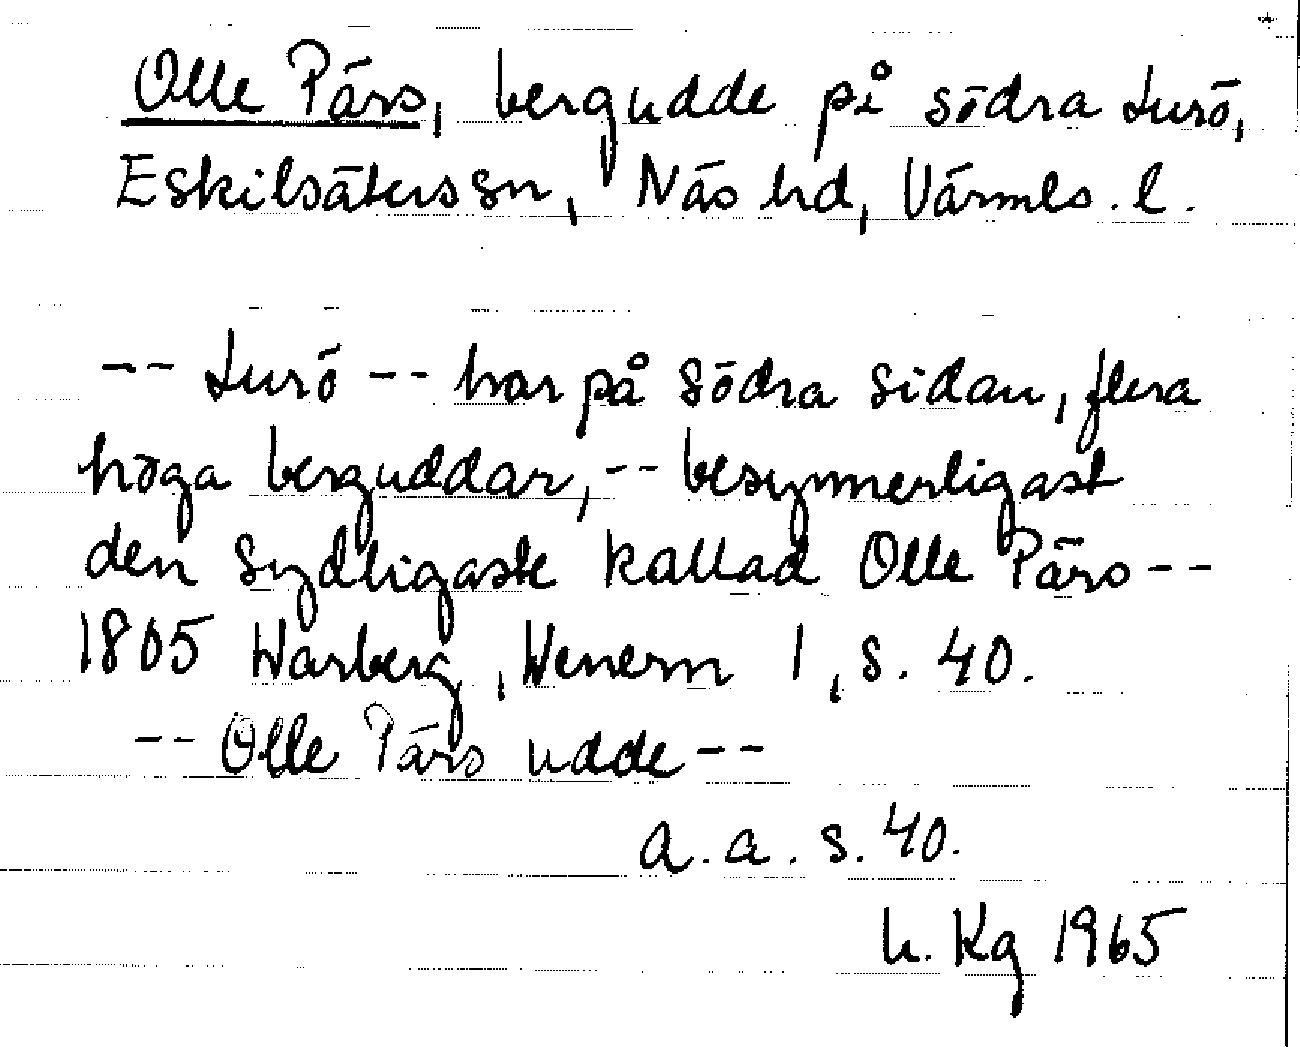 Olle Pärs, bergudde på södra Lurö,
Eskilsäters sn, Näs hd, Värmls. l.
-- Lurö -- har på södra sidan, flera
höga berguddar, -- besynnerligast
den sydligaste kallad Olle Pärs --
1805 Warberg, Wenern 1, s. 40.
-- Olle Pärs udde --
a. a. s. 40.
h. Kg 1965